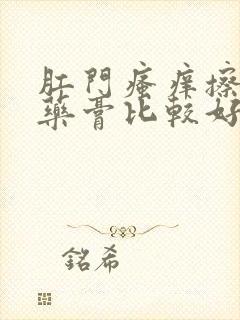 肛門瘙痒擦
藥膏比較好
銘希